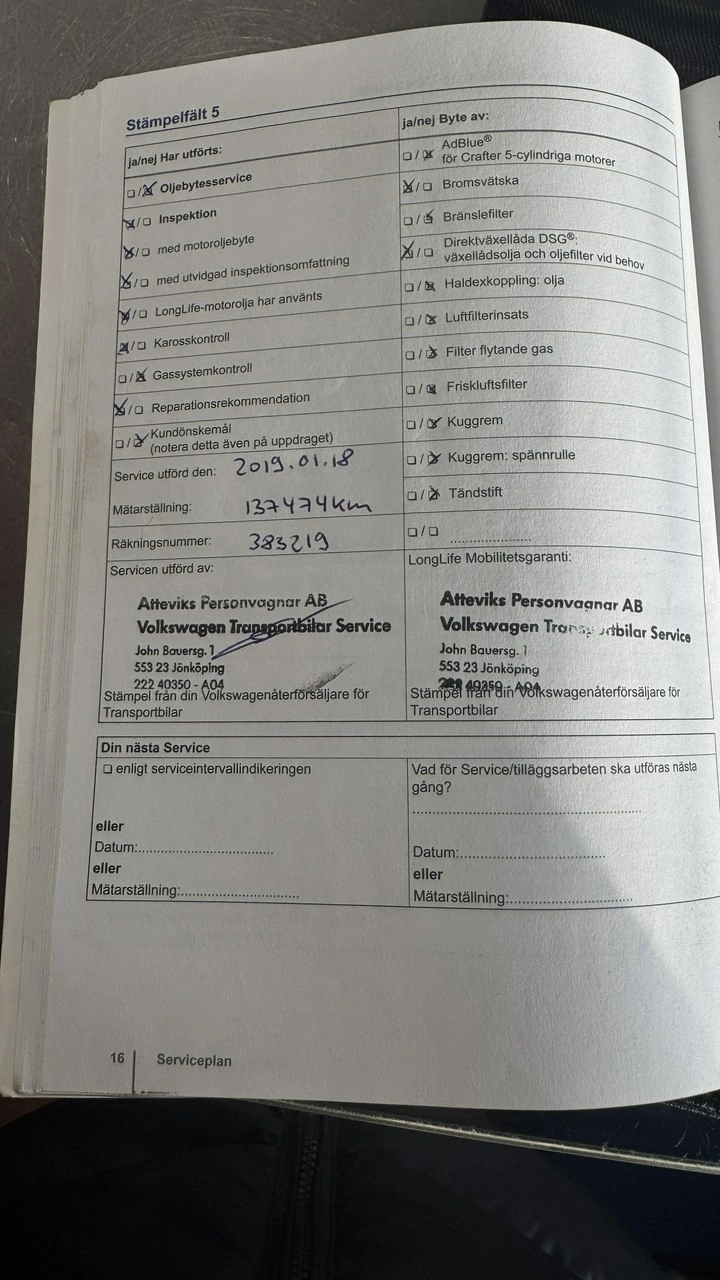 Stämpelfält 5
ja/nej Har utförts:
☐/☒ Oljebytesservice
☒/☐ Inspektion
☒/☐ med motoroljebyte
☒/☐ med utvidgad inspektionsomfattning
☒/☐ LongLife-motorolja har använts
☒/☐ Karosskontroll
☐/☒ Gassystemkontroll
☒/☐ Reparationsrekommendation
☐/☒ Kundönskemål
(notera detta även på uppdraget)
Service utförd den: 2019.01.18
Mätarställning: 137474km
Räkningsnummer: 383219
Servicen utförd av:
Atteviks Personvagnar AB
Volkswagen Transportbilar Service
John Bauersg. 1
553 23 Jönköping
222 40350 - A04
Stämpel från din Volkswagenåterförsäljare för
Transportbilar
ja/nej Byte av:
☐/☒ AdBlue®
för Crafter 5-cylindriga motorer
☒/☐ Bromsvätska
☐/☒ Bränslefilter
☒/☐ Direktväxellåda DSG®:
växellådsolja och oljefilter vid behov
☐/☒ Haldexkoppling: olja
☐/☒ Luftfilterinsats
☐/☒ Filter flytande gas
☐/☒ Friskluftsfilter
☐/☒ Kuggrem
☐/☒ Kuggrem: spännrulle
☐/☒ Tändstift
☐/☐ ......................
LongLife Mobilitetsgaranti:
Atteviks Personvagnar AB
Volkswagen Transportbilar Service
John Bauersg. 1
553 23 Jönköping
222 40350 - A04
Stämpel från din Volkswagenåterförsäljare för
Transportbilar
Din nästa Service
☐ enligt serviceintervallindikeringen
eller
Datum:..............................
eller
Mätarställning:..........................
Vad för Service/tilläggsarbeten ska utföras nästa
gång?
..................................................
Datum:..............................
eller
Mätarställning:..........................
16 Serviceplan